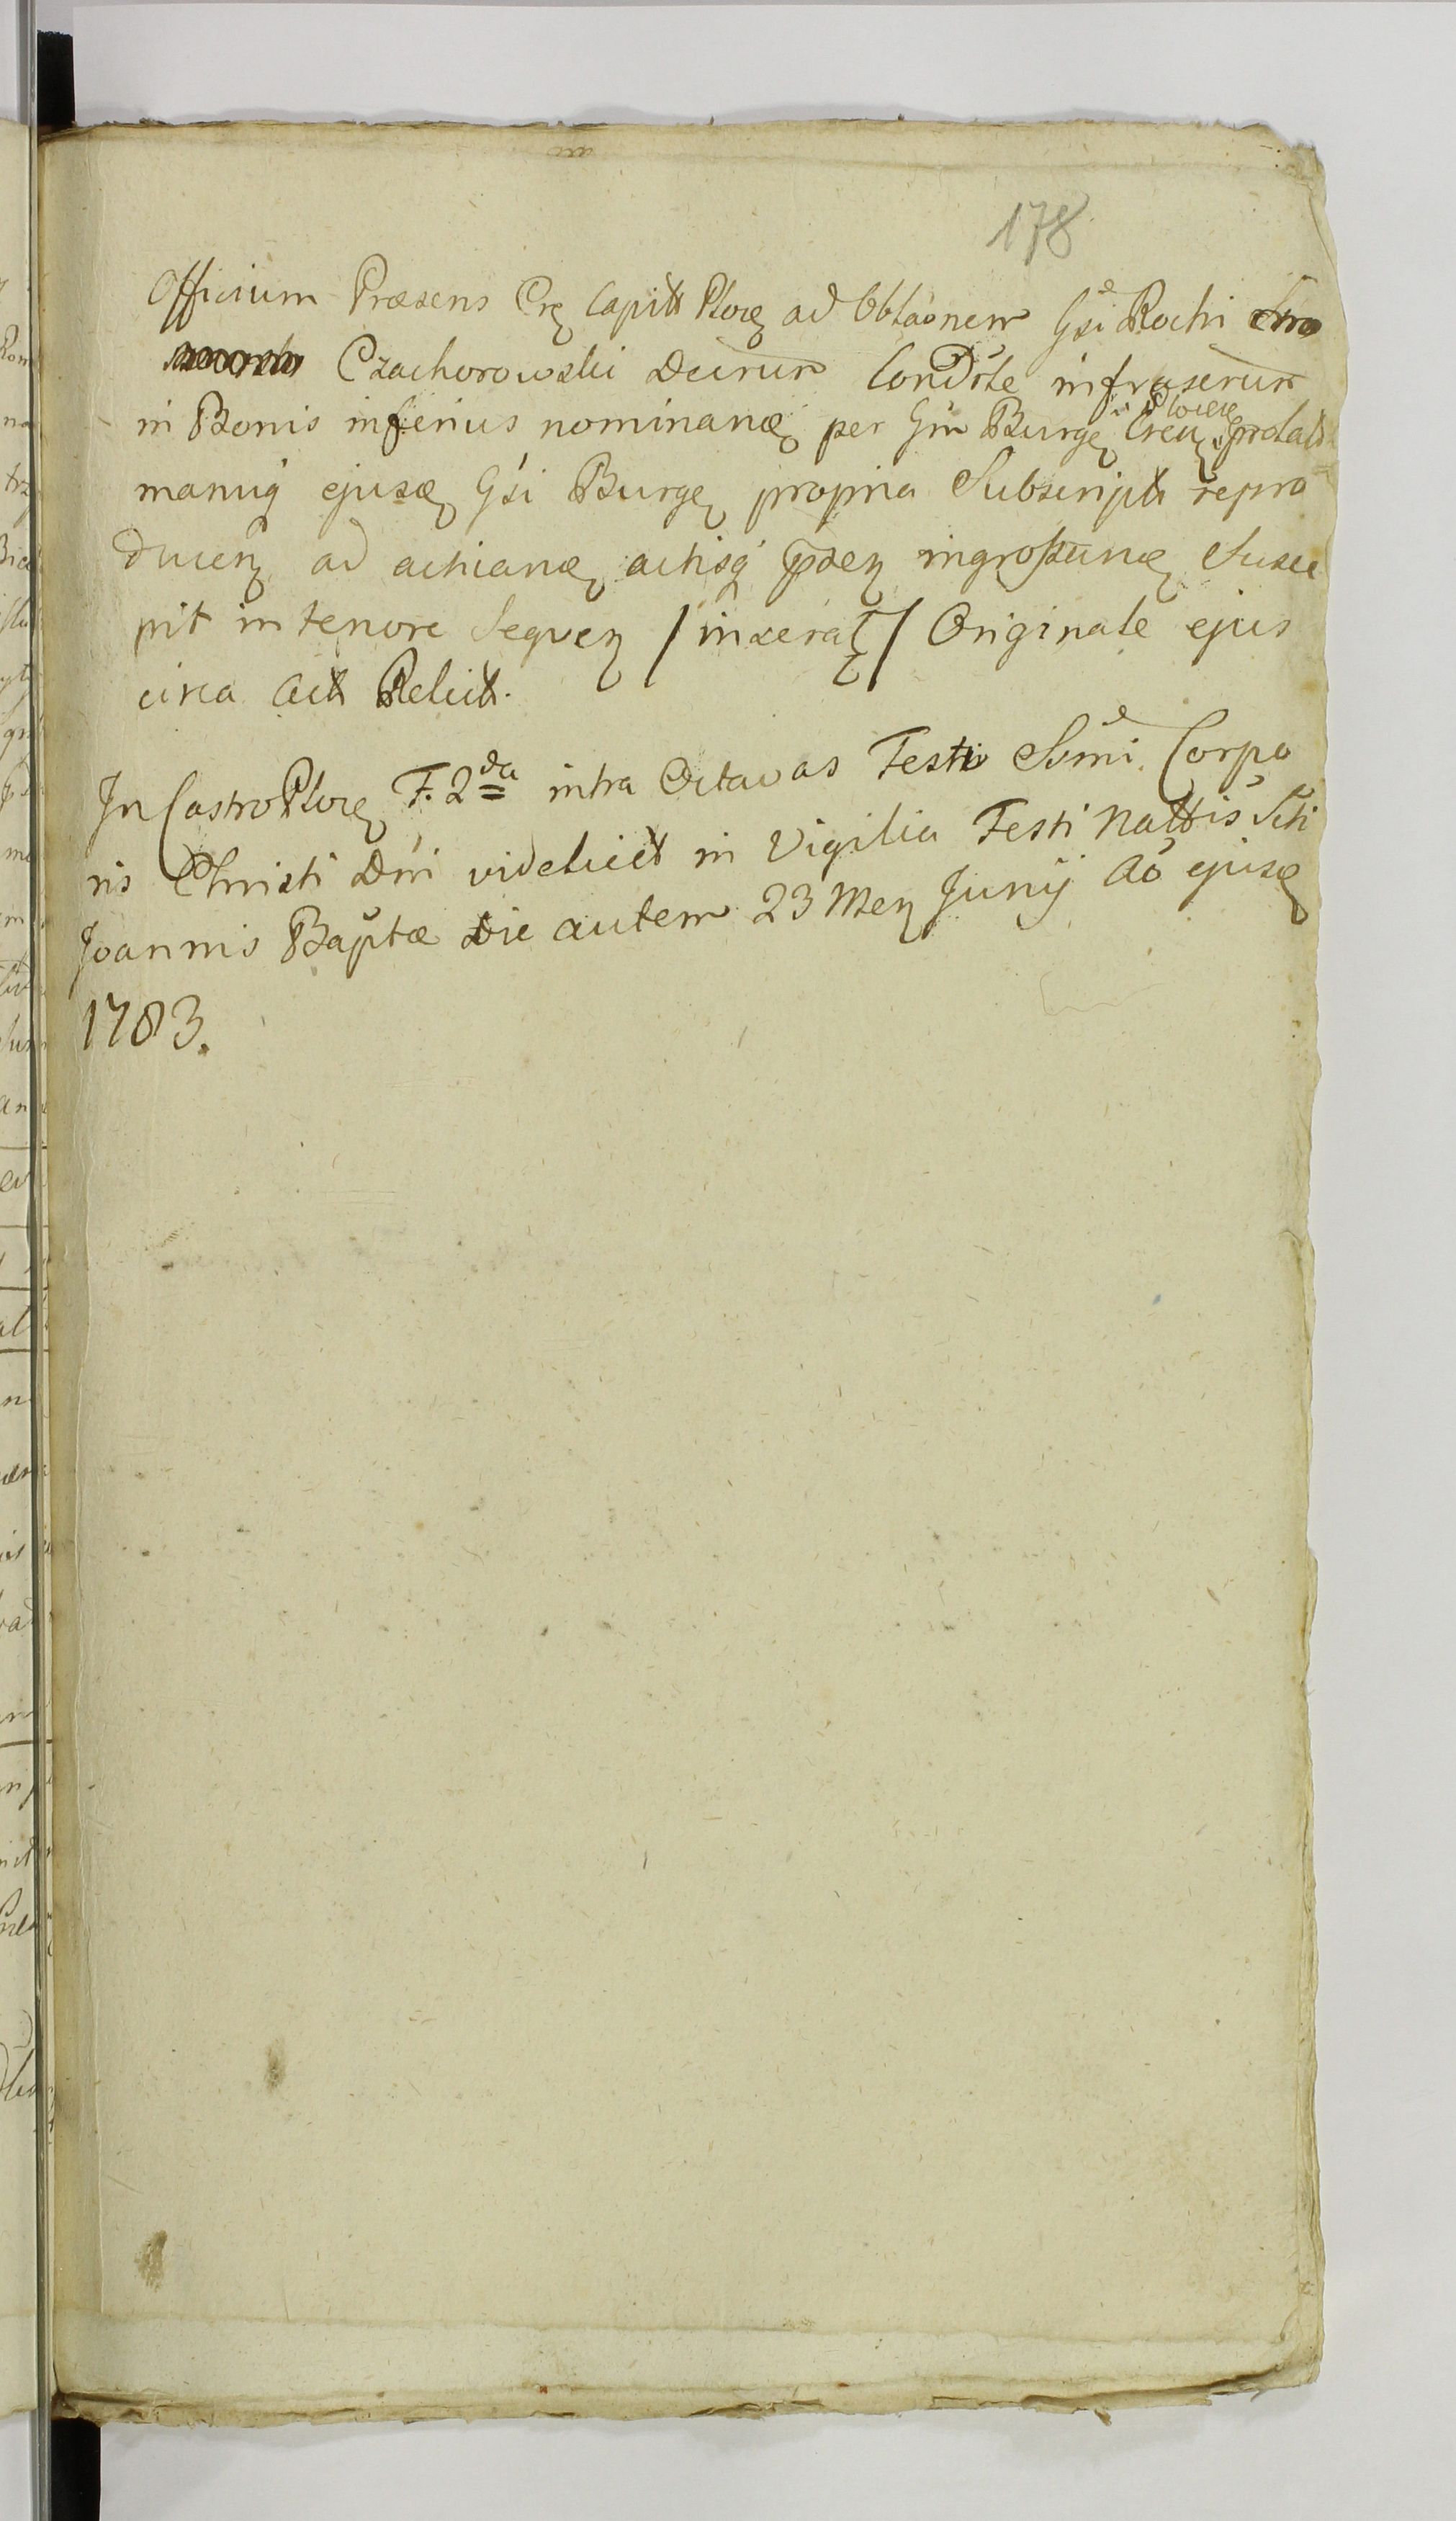 178
Officium Præsens Crẹ Capitt Plocẹ ad Obtaonem Gsi Rochi
Czachorowski Decrum Condste infrascrum
in Bonis inferius nominanæ per Gm Burgẹ Creẹ Plocen prolatt
manuq ejusæ Gsi Burgẹ propria Subscriptt repro
ducen ad acticanæ actisq pden ingrossanæ Susce
pit in tenore Sequen / inserat / Originale ejus
circa Actt Relictt.
In Castro Plocẹ F. 2da intra Octavas Festi Ssmi Corpo
ris Christi Dni videlicet in Vigilia Festi Nattis Scti
Joannis Baptæ Die autem 23 Men Junij Ao ejusæ
1783.